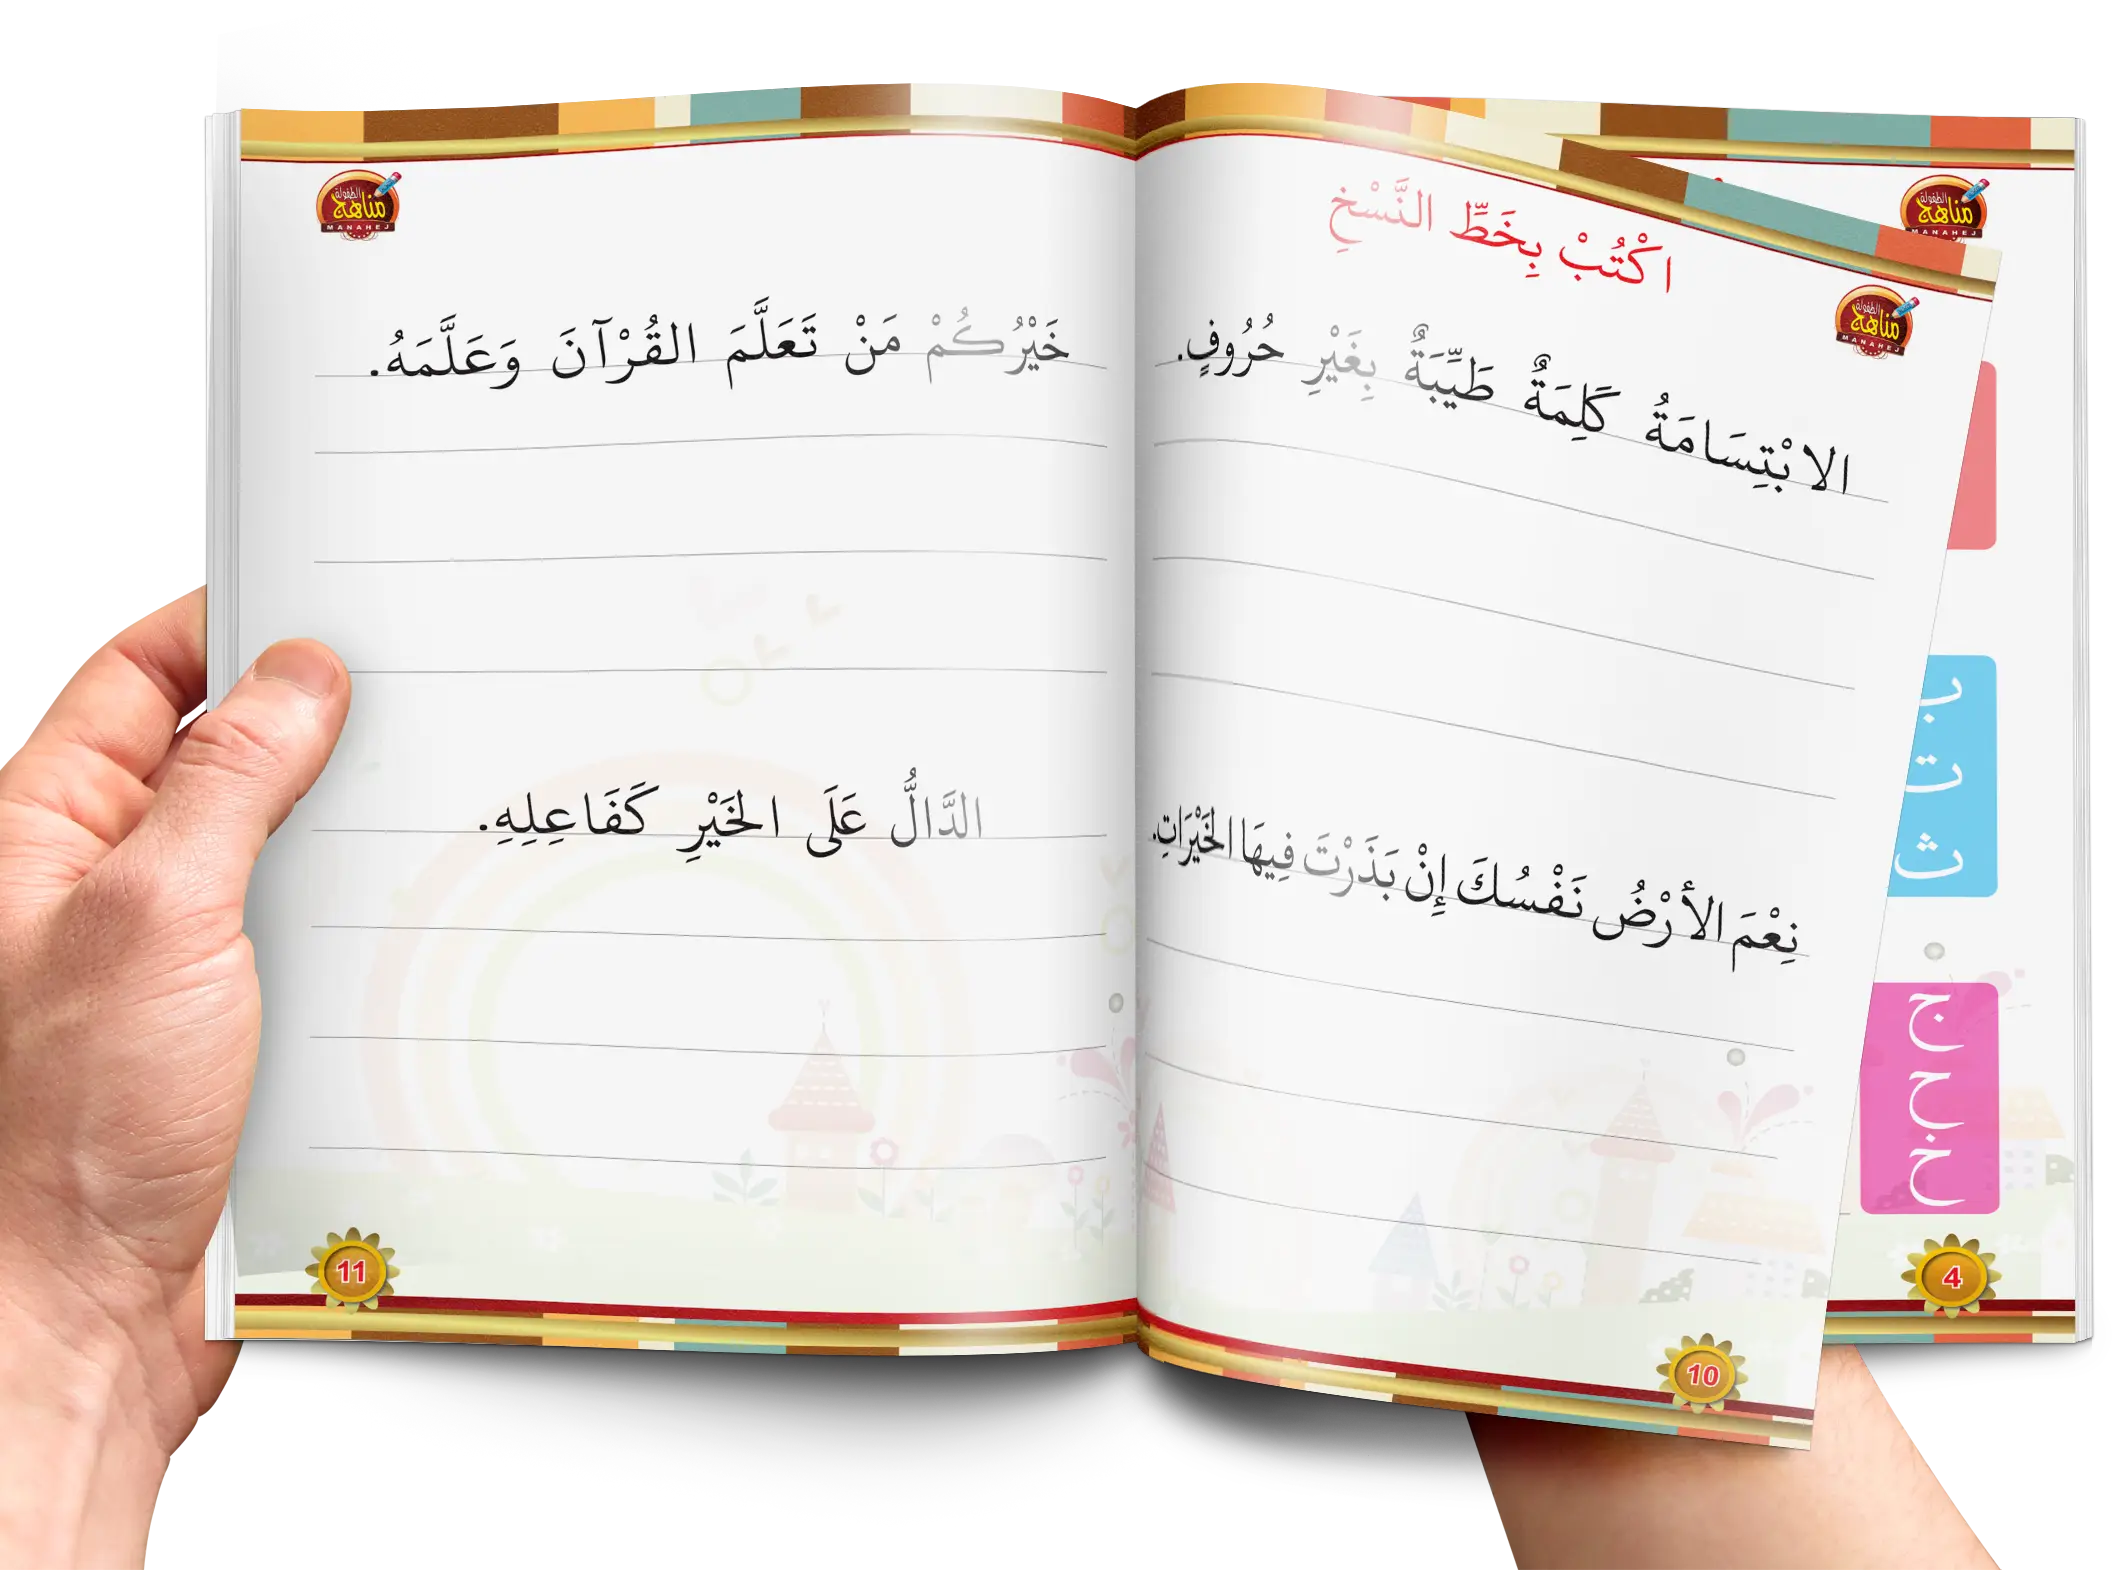 الطفولة
مناهج
MANAHEJ
ب
ت
ث
ج
ح
خ
4
الطفولة
مناهج
MANAHEJ
اكْتُبْ بِخَطِّ النَّسْخِ
الابْتِسَامَةُ كَلِمَةٌ طَيِّبَةٌ بِغَيْرِ حُرُوفٍ.
نِعْمَ الأرْضُ نَفْسُكَ إِنْ بَذَرْتَ فِيهَا الخَيْرَاتِ.
10
الطفولة
مناهج
MANAHEJ
خَيْرُكُمْ مَنْ تَعَلَّمَ القُرْآنَ وَعَلَّمَهُ.
الدَّالُّ عَلَى الخَيْرِ كَفَاعِلِهِ.
11